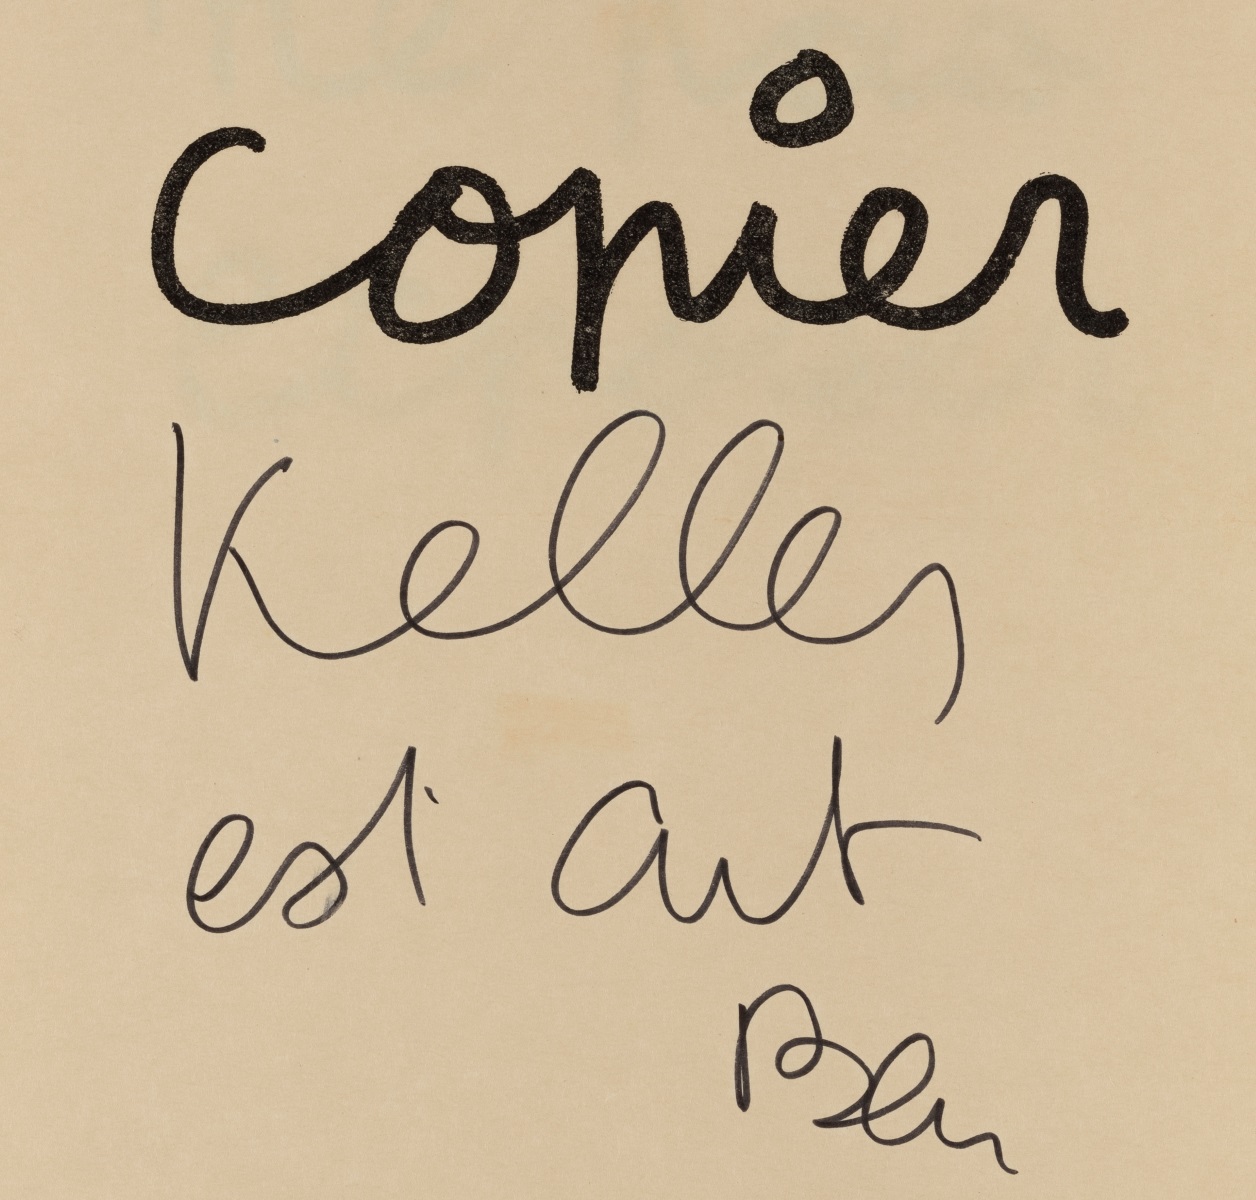 Copier
Keller
est art
Ben